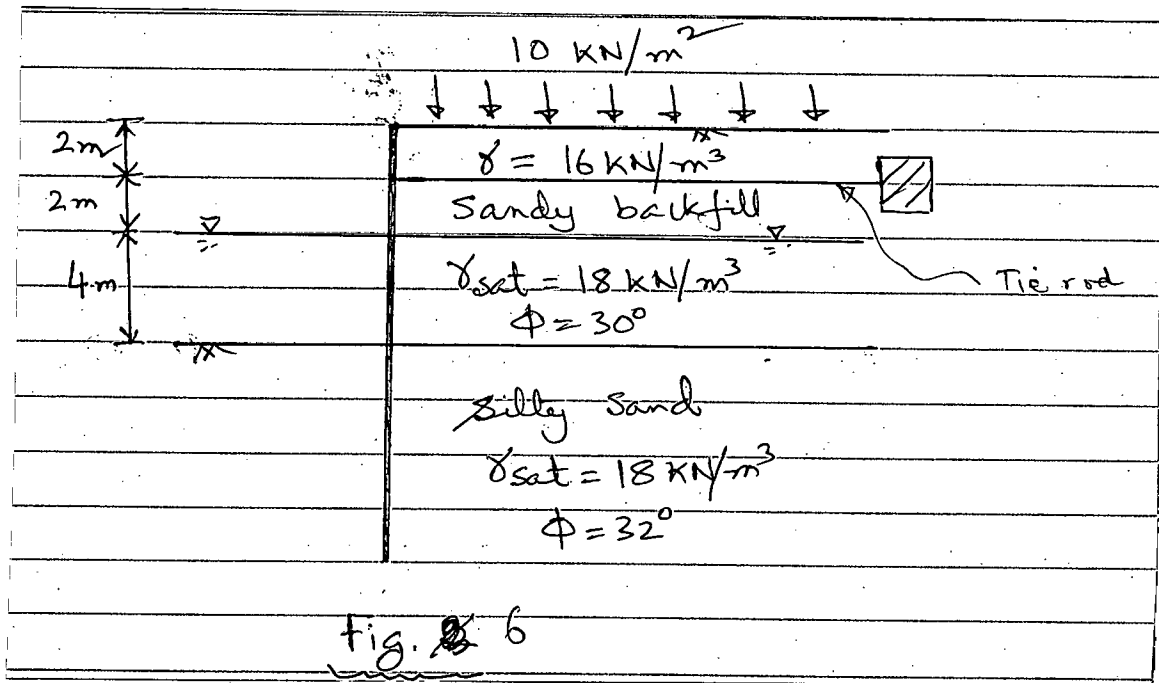 10 KN/m²
2m
γ = 16 KN/m³
2m
Sandy backfill
4m
γsat = 18 KN/m³
Tie rod
Φ = 30°
Silty Sand
γsat = 18 KN/m³
Φ = 32°
Fig. 6